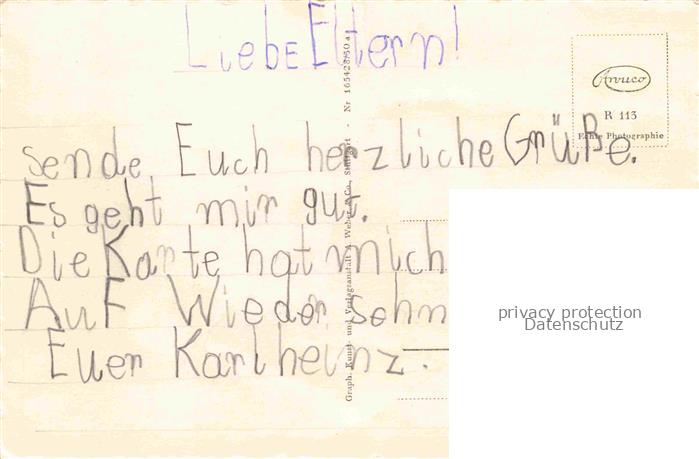 Liebe Eltern!
Arvuco
R 113
Echte Photographie
sende Euch herzliche Grüße.
Es geht mir gut.
Die Karte hat mich
Auf Wieder sehn
Euer Karlheinz.
Graph. Kunst- und Verlagsanstalt A Weber & Co. Stuttgart - Nr 165428/50 a
privacy protection
Datenschutz